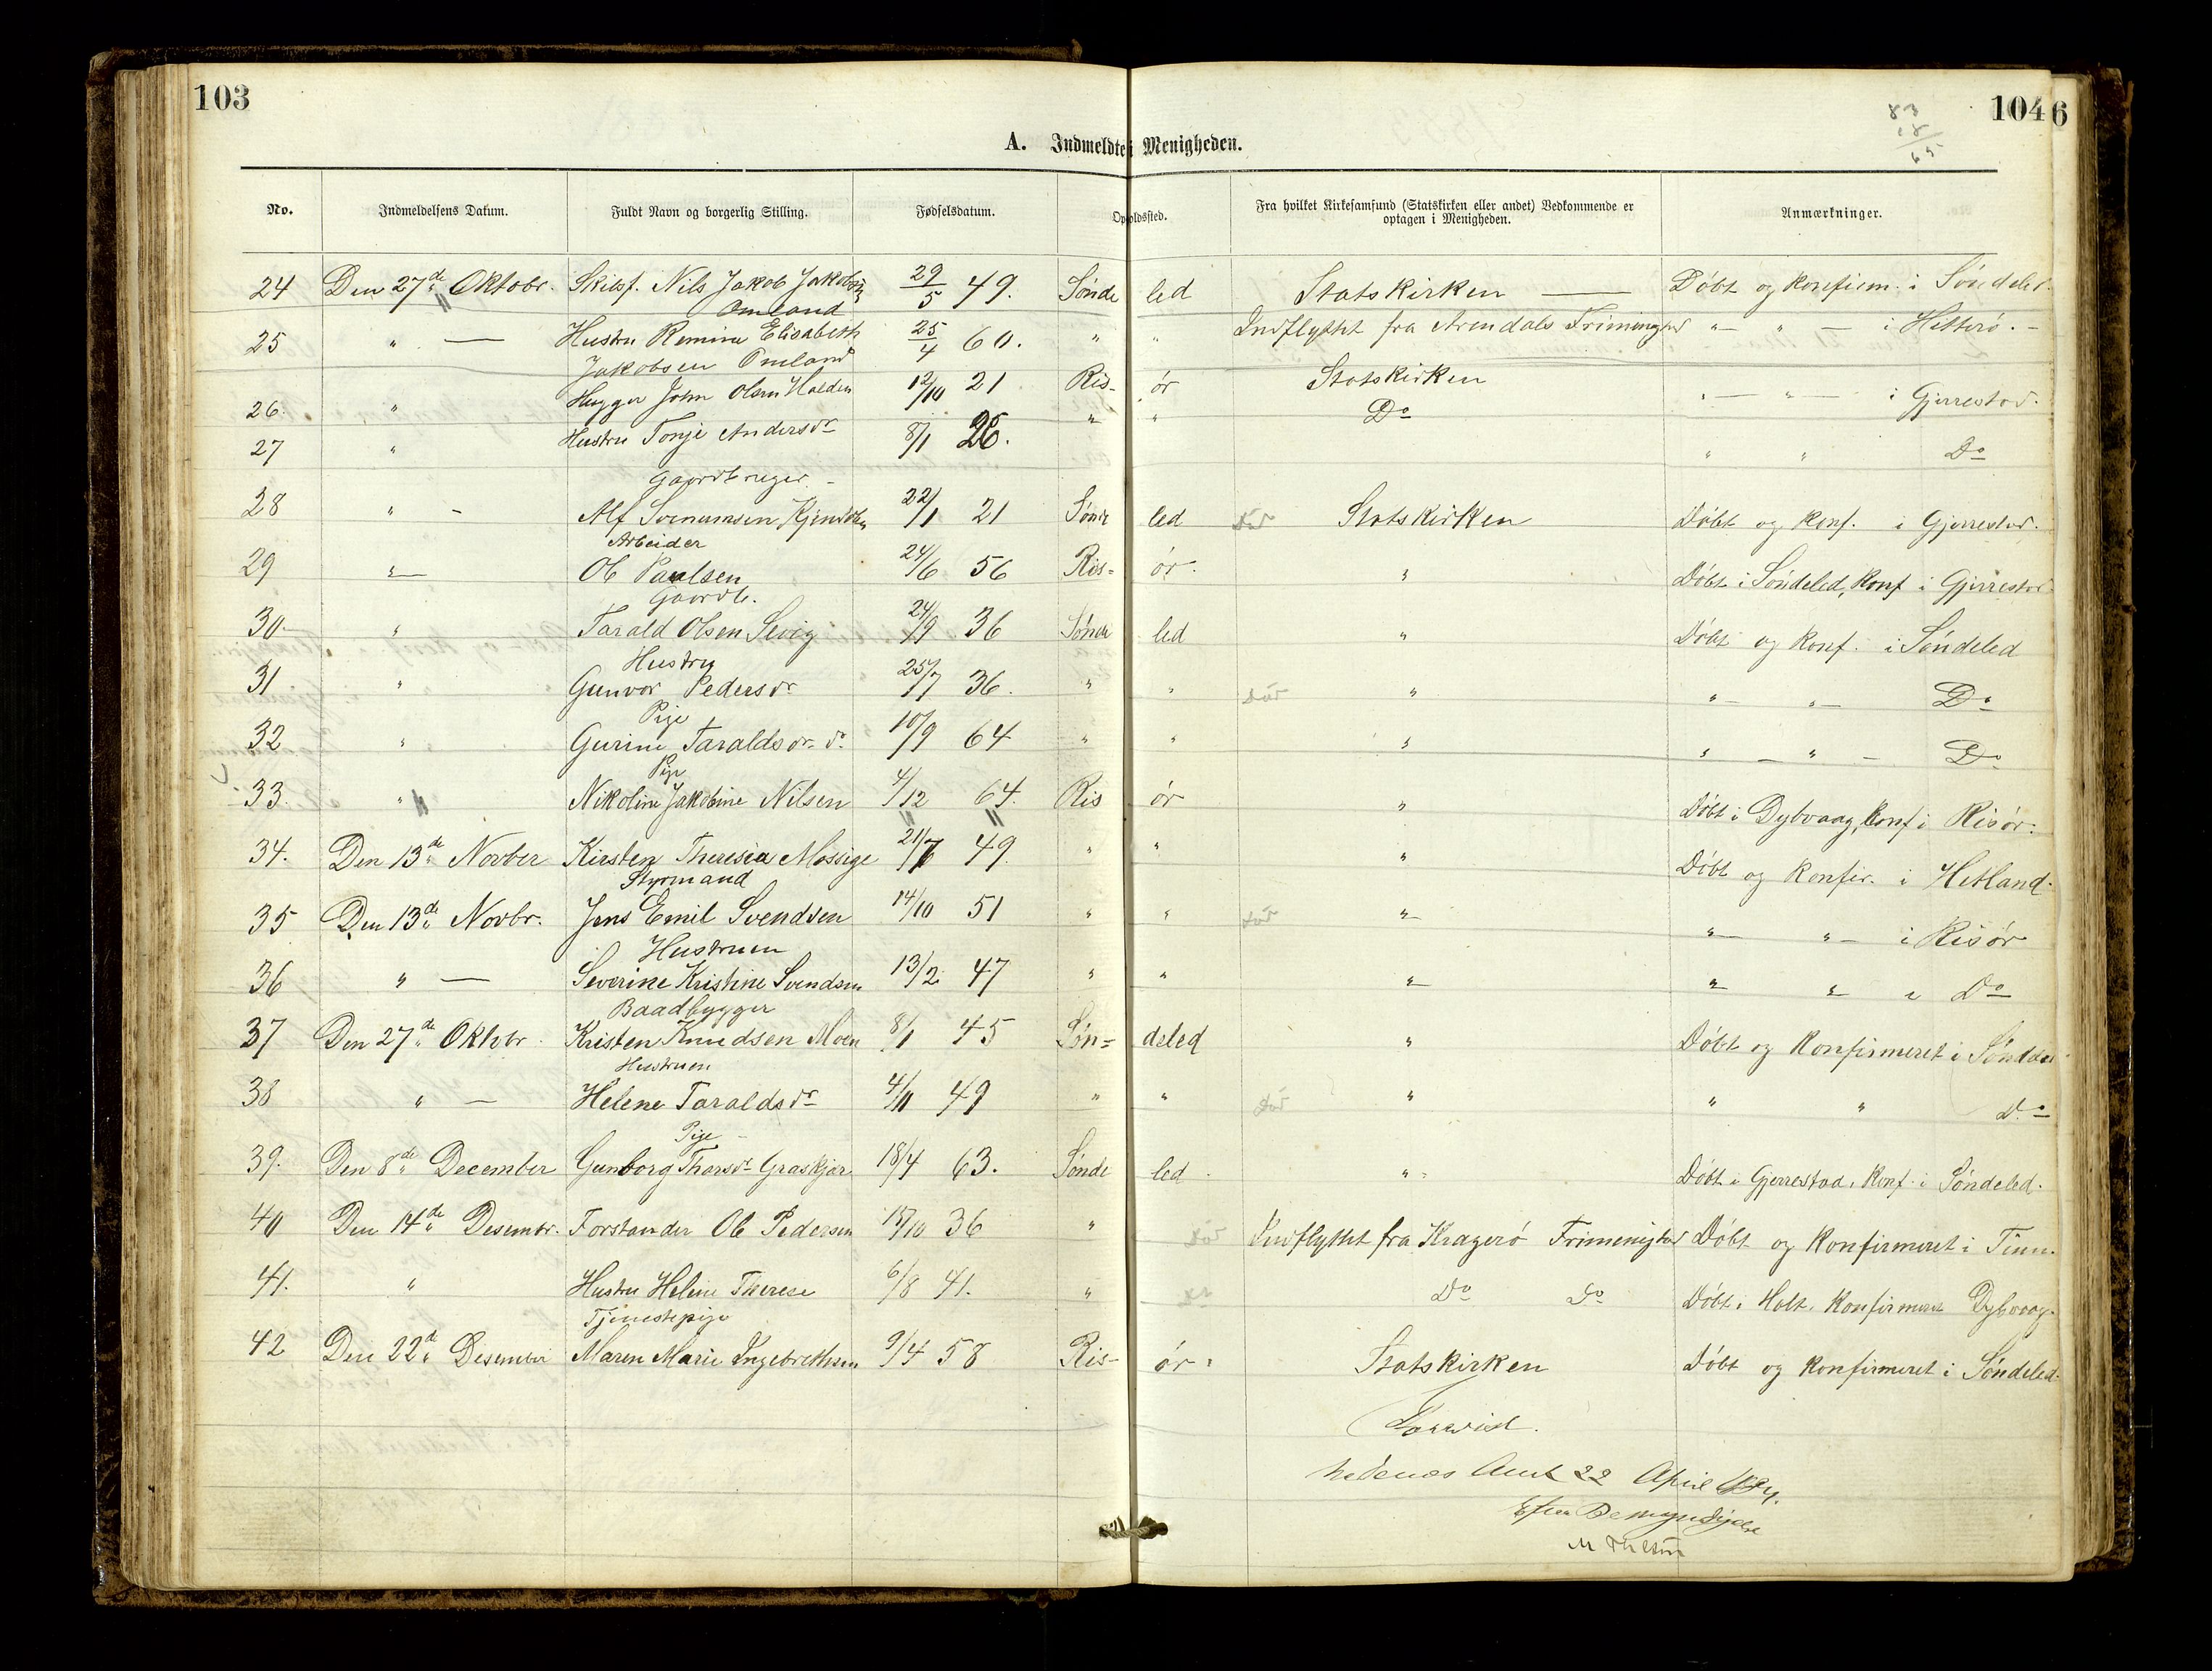 103
1046
83
18
65
A. Indmeldte i Menigheden.
No. Indmeldelsens Datum. Fuldt Navn og borgerlig Stilling. Fødselsdatum. Opholdssted. Fra hvilket Kirkesamfund (Statskirken eller andet) Vedkommende er optagen i Menigheden. Anmærkninger.
24 Den 27de Oktobr. Skibsf. Nils Jakob Jakobsen 29/5 49. Sønde led Statskirken — Döbt og konfirm. i Söndeled.
Omland
25 " — Hustru Remine Elisabeth 25/4 60. " " Indflyttet fra Arendals Frimenighed "— " — i Hitterö. -
Jakobsen Omland
26. " Hugger John Olsen Halden 12/10 21 Ris- ör Statskirken "— "— i Gjerrestad.
27 " Hustru Tonje Andersdr 8/1 26. " " Do " " Do
Gaardbruger -
28 " - Alf Svenumsen 22/1 21 Sönde led Död Statskirken Döbt og konf. i Gjerrestad.
Arbeider
29 "— Ole Paulsen 24/6 56 Ris- ör. " Döbt i Söndeled, konf i Gjerrestad
Gaardb.
30. " Tarald Olsen Sevig 24/9 36 Sönde led " Döbt og konf. i Söndeled
Hustru
31 " Gunvor Pedersdr 25/7 36. " " Död " "— "— Do
Pige
32 " Gurine Taraldsdr do 10/9 64 " " " " — " — Do
Pige
33. " Nikoline Jakobine Nilsen 4/12 64. Ris ör " Döbt i Dybvaag, konf i Risör.
34. Den 13de Novber Kirsten Theresia Mossige 21/7 49 " " " Döbt og konfir. i Hetland.
Styrmand
35 Den 13de Novbr. Jens Emil Svendsen 14/10 51 " " Död "— "— "— i Risör
Hustruen
36 " — Severine Kristine Svendsen 13/2 47 " " "— "— "— i Do
Baadbygger
37 Den 27de Oktbr. Kristen Knudsen Moen 8/1 45 Søn= deled " Döbt og konfirmeret i Söndeled
Hustruen
38 " — Helene Taraldsdr 4/11 49 " " Död " " " Do
Pige -
39. Den 8de December Gunborg Thorsdr Graskjær 18/4 63. Sönde led. " Döbt i Gjerrestad, konf. i Söndeled.
40 Den 14de Desembr. Forstander Ole Pedersen 15/10 36 " Död Indflyttet fra Kragerö Frimenighed Döbt og konfirmeret i Tinn.
41. " Hustru Helene Therese 6/8 41. " Do Do Döbt i Holt, konfirmeret Dybvaag.
Tjenestepige
42 Den 22de Desember Maren Marie Ingebrethsen 9/4 58 Ris- ör. Statskirken Döbt og konfirmeret i Söndeled.
Forevist.
Nedenes Amt 22 April 1884.
Efter Bemyndigelse